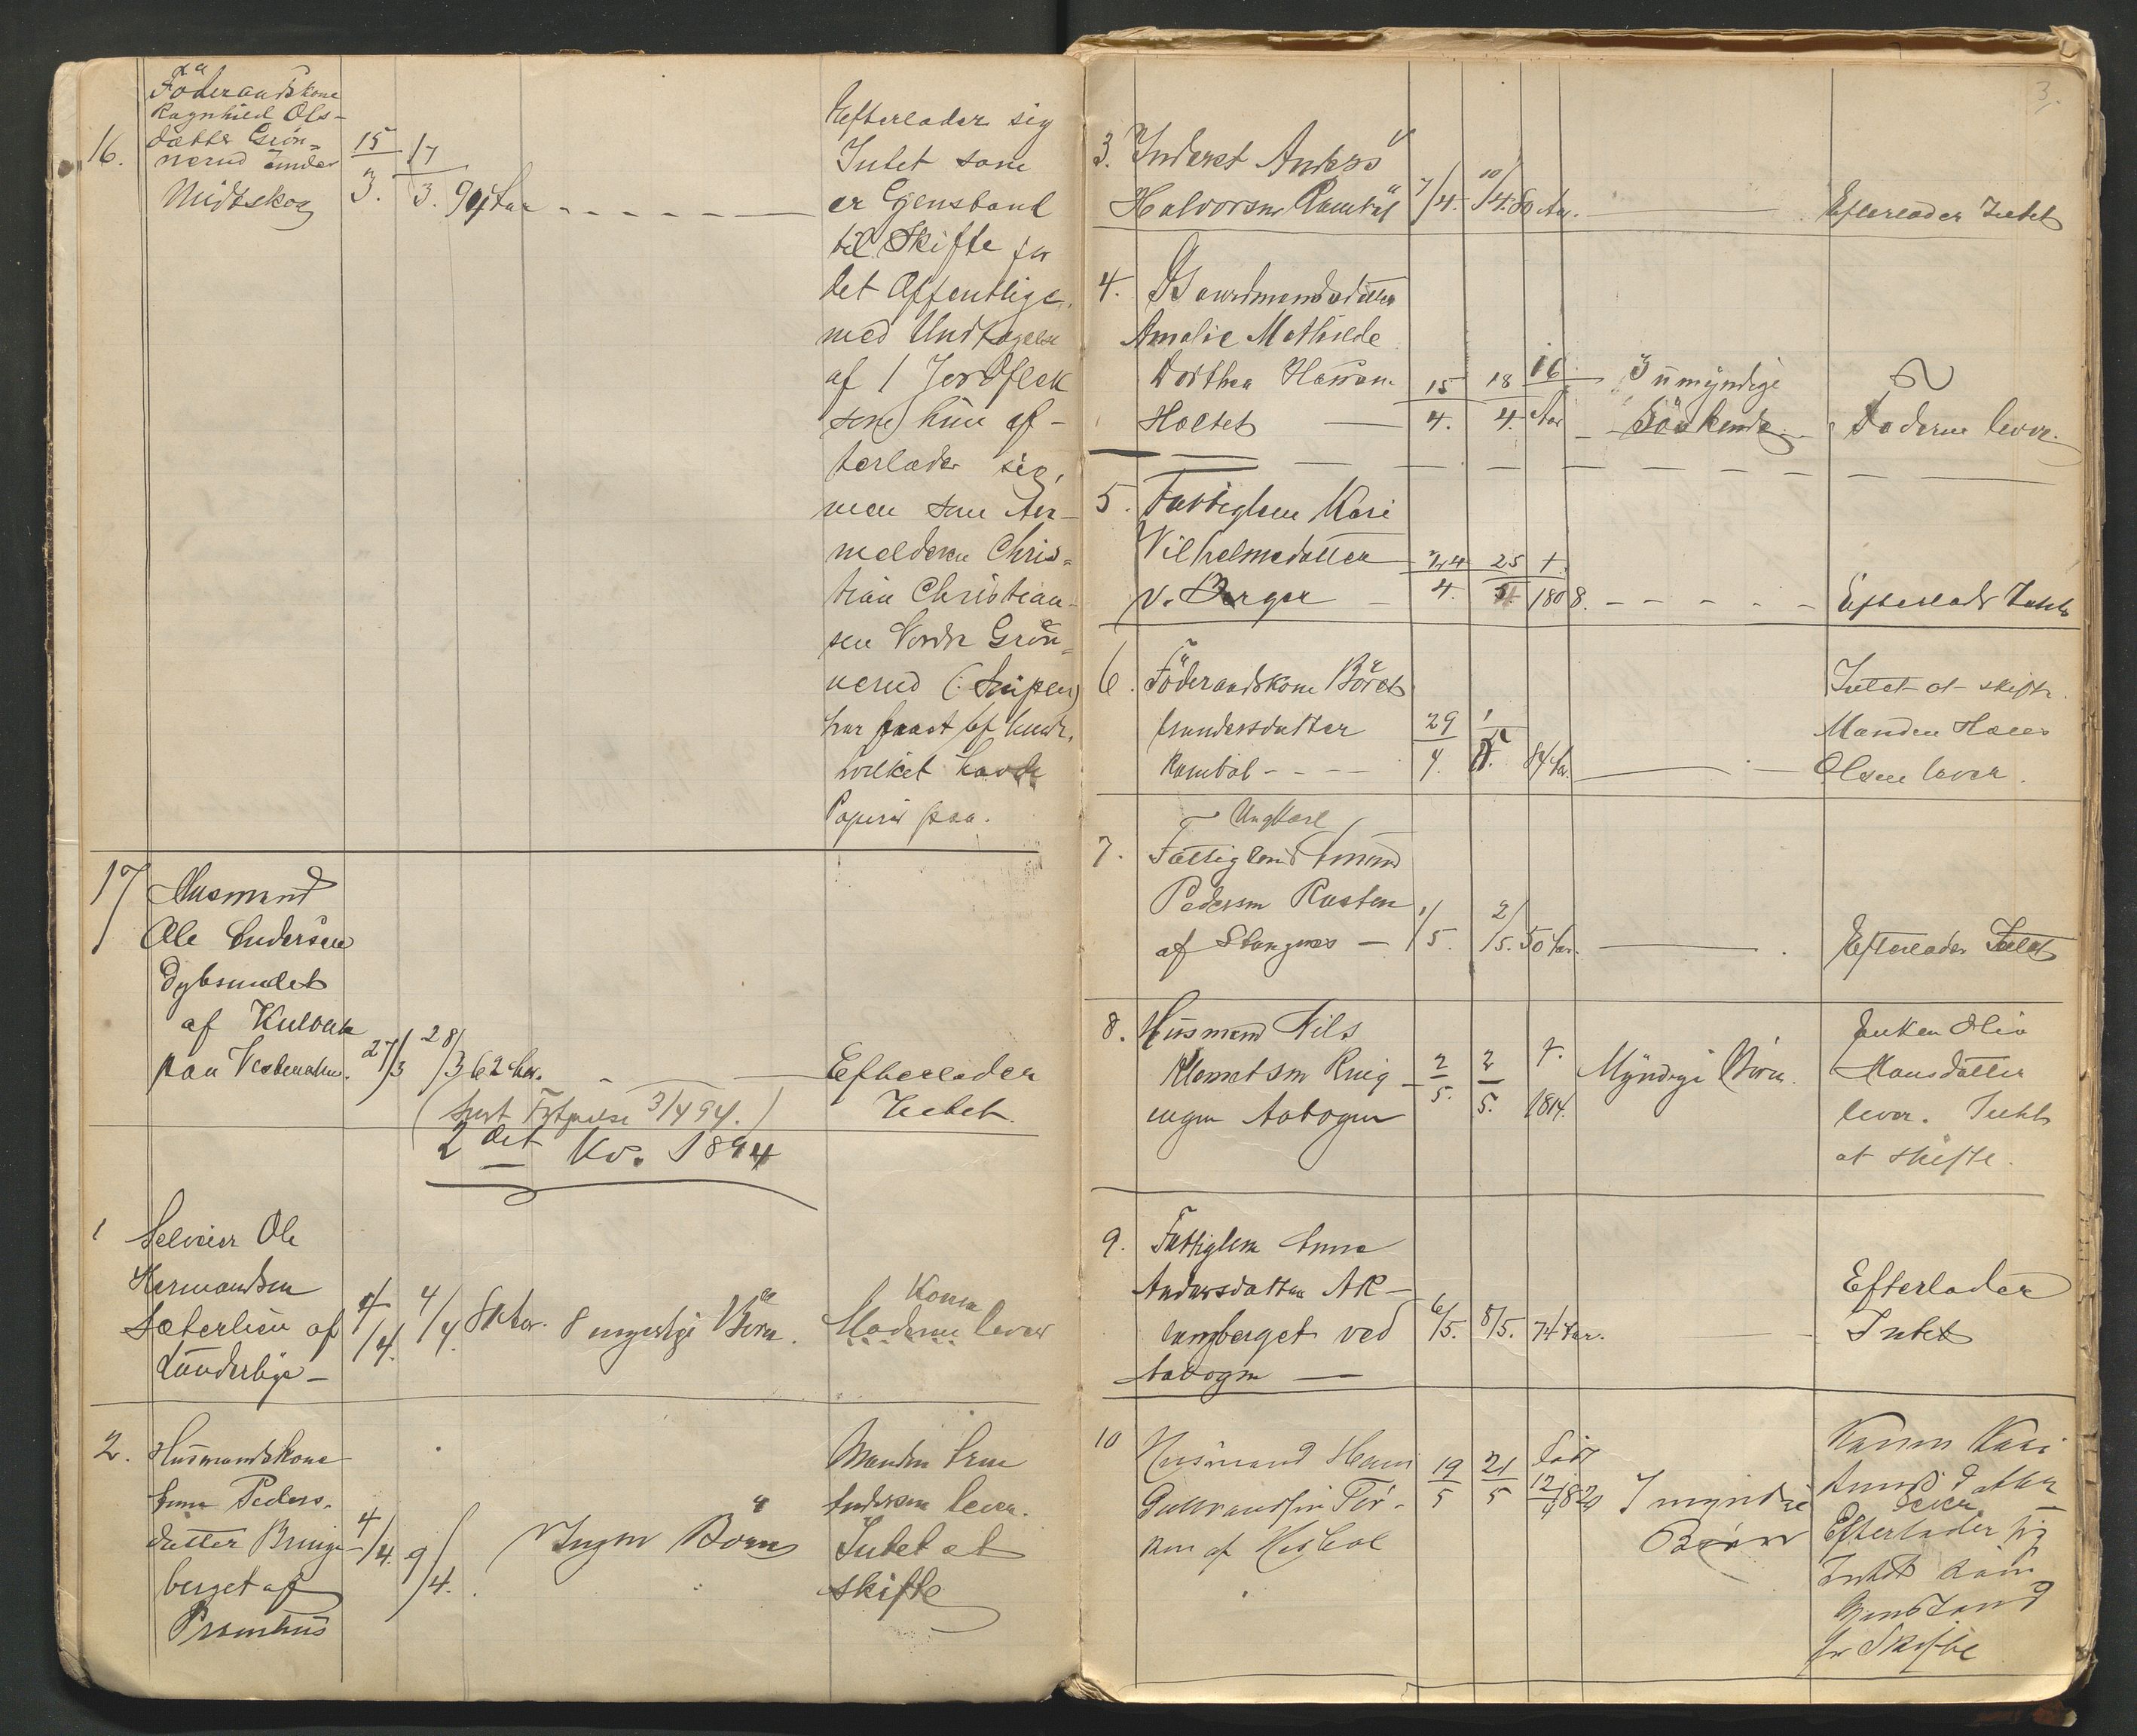 Föderaadskone
Ragnhild Ols-
16. datter Grön-
nerud under
Midtskog
15/3. 17/3. 90 Aar
Efterlader sig
Intet som
er Gjenstand
til Skifte for
det Offentlige,
med Undtagelse
af 1
som hun ef-
terlader sig,
men som An-
melderen Chris-
tian Christian-
sen Nordre Grön-
nerud
har faaet af hende,
hvilket havde
Papirer paa.
17 Husmand
Ole Andersen
Dybsundet
af Kulblik
paa Vestenahn. 27/3 28/3 62 Aar. Efterlader
Intet.
3/4 94.)
2det Kv. 1894
1 Selveier Ole
Hermandsen
Sæterlien af
Sönderbye 4/4. 4/4. 8 myndige Börn. Konen
Moderen lever
2. Husmandskone
Anna Peders-
datter Bringe-
berget af
Pramhus
4/4. 9/4. Ingen Börn
Manden Arne
Andersen lever.
Intet at
skifte
3.
3. Inderst Anders
Halvorsen Ramböl 7/4. 10/4. 80 Aar. Efterlader Intet
4. Gaardmandsdatter
Amalie Mathilde
Dorthea Hansen
Holtet 15/4. 18/4. 16 Aar 3 umyndige
Söskende. Foderen lever.
5. Fattiglem Kari
Vilhelmsdatter
v. Berger 24/4. 25/4. f. 1808. Efterlader Intet
6. Föderaadskone Böret
Amundersdatter
Ramböl 29/4. 1/5. 84 Aar.
Intet at skifte.
Manden Hans
Olsen lever.
Ungkarl
7. Fattiglem Amund
Pedersen Rasten
af Stangnes 1/5. 2/5. 50 Aar. Efterlader Intet
8. Husmand Nils
Klemetsen Ring-
engen Aabogen 2/5. 2/5. f. 1814. Myndige Börn.
Enken Olia
Hansdatter
lever. Intet
at skifte.
9. Fattiglem Anna
Andersdatter Ak-
ved
Aabogen 6/5. 8/5. 74 Aar. Efterlader
Intet
10 Husmand Hans
Gulbrandsen Tor-
19/5 21/5 född 12/4 1820 7 myndige
Börn
Konen Kari
datter
lever
Efterlader sig
Intet som
Gjenstand
for Skifte